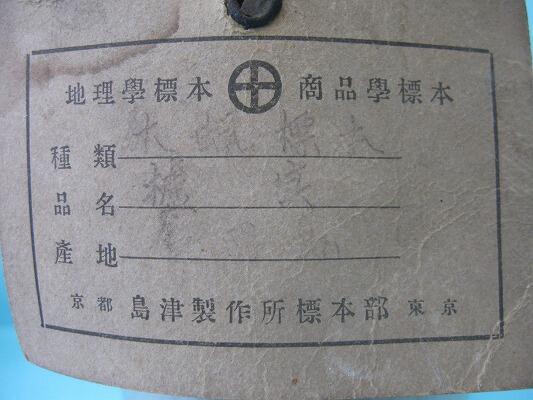 地理學標本 商品學標本
種類 木蝋標本
品名 櫨実
產地
京都 島津製作所標本部 東京